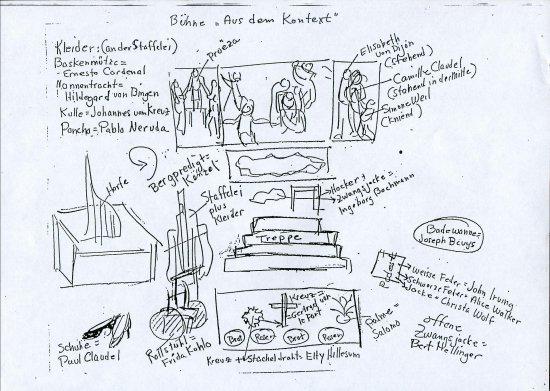 Bühne „Aus dem Kontext"
Kleider: (an der Staffelei)
Baskenmütze=
Ernesto Cardenal
Nonnentracht=
Hildegard von Bingen
Kutte = Johannes vom Kreuz
Poncho = Pablo Neruda
Proëza
Elisabeth
von Dijon
(stehend)
Camille Claudel
(stehend in der Mitte)
Simone Weil
(kniend)
Harfe
Bergpredigt=
Kanzel
Staffelei
plus
Kleider
Hocker +
Zwangsjacke=
Ingeborg Bachmann
Treppe
Badewanne=
Joseph Beuys
Podest
weisse Feder = John Irving
schwarze Feder = Alice Walker
Jacke = Christa Wolf
offene
Zwangsjacke=
Bert Hellinger
Palme=
Salomo
Kreuz=
Gertrud von
le Fort
Brot
Rosen
Brot
Rosen
Kreuz + Stacheldraht= Etty Hillesum
Rollstuhl=
Frida Kahlo
Schuhe=
Paul Claudel